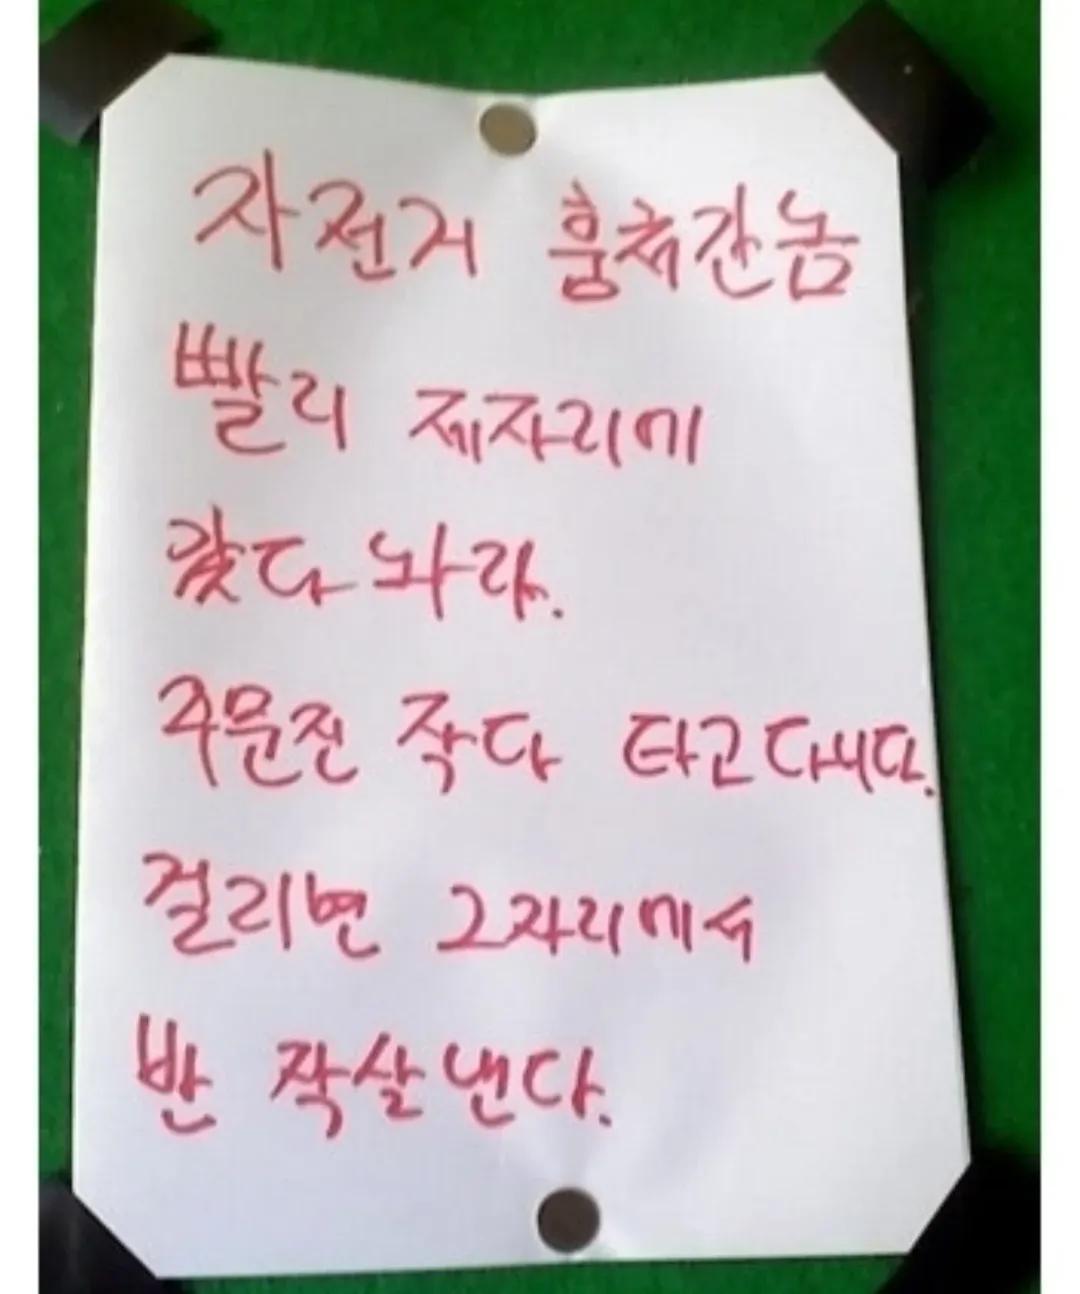 자전거 훔쳐간놈
빨리 제자리에
갖다 놔라.
주문진 작다 타고다니다.
걸리면 그자리에서
반 작살낸다.